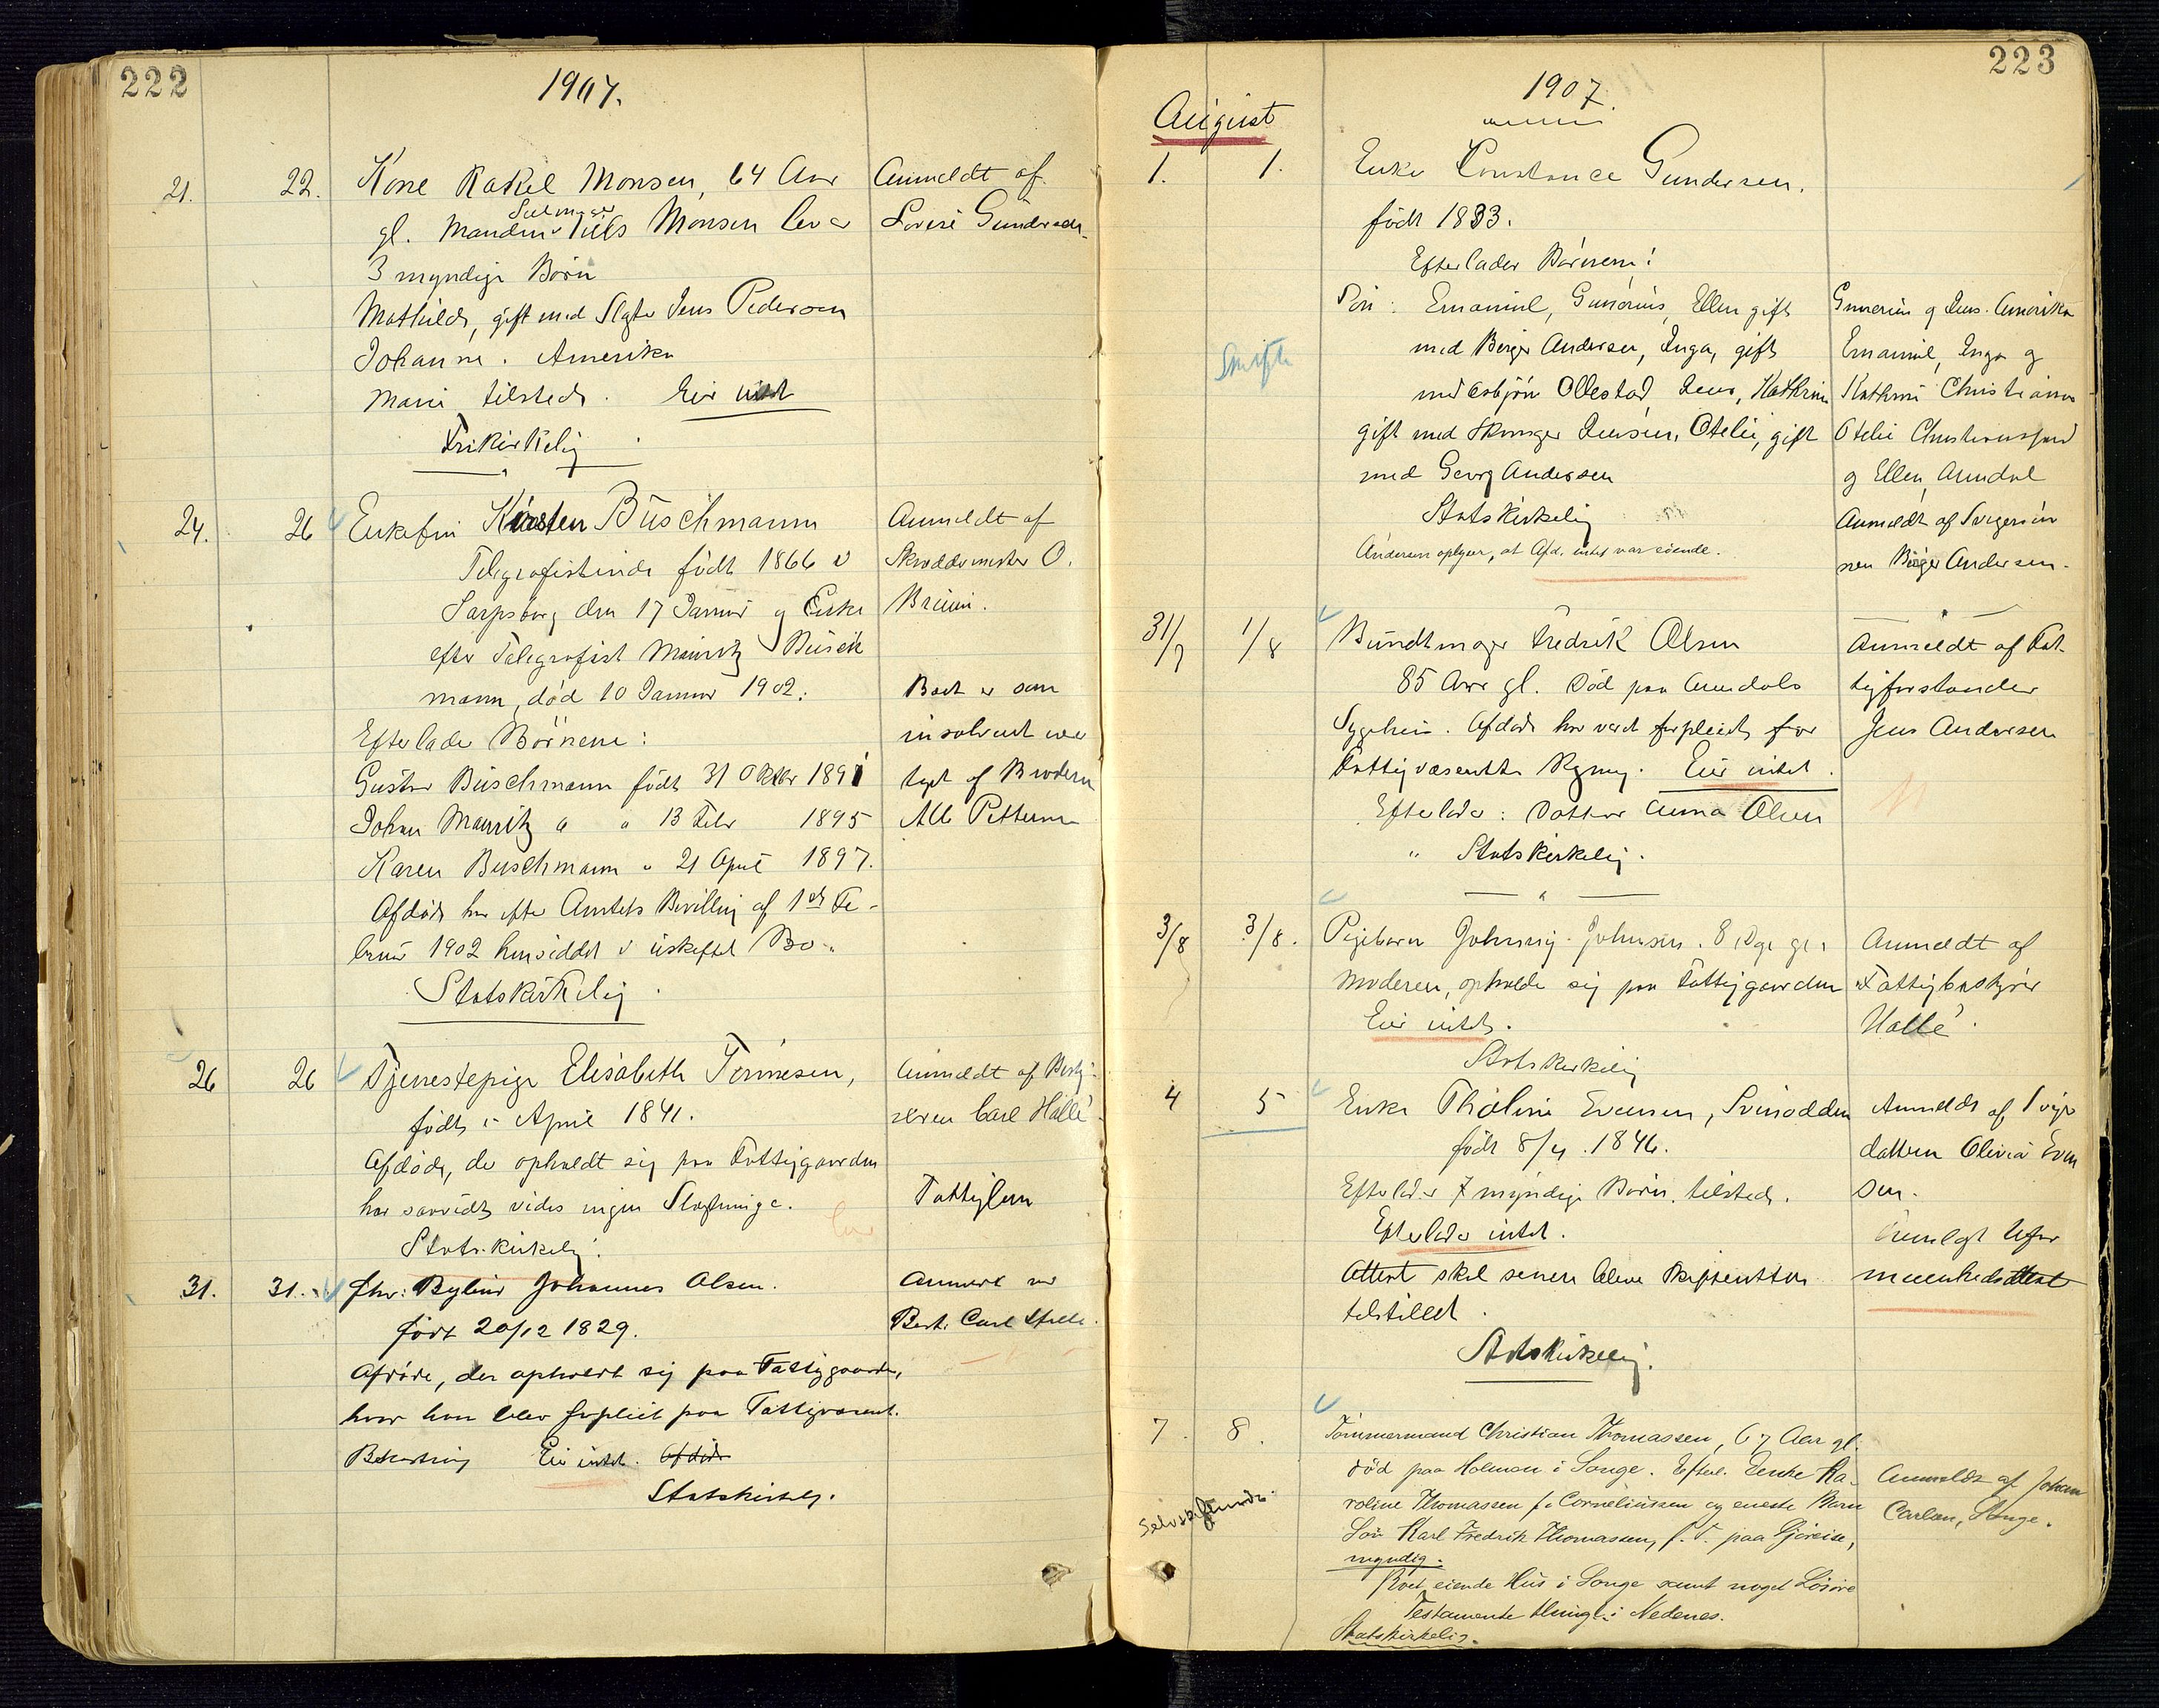 222
1907.
21. 22. Kone Rakel Monsen, 64 Aar
gl. Manden Nils Monsen lever
3 myndige Børn
Mathilde, gift med Slagter Jens Pedersen
Johanne. Amerika
Marie tilstede. Eier intet
Frikirkelig
Anmeldt af
Lovise Gundersen
24. 26 Enkefru Kirsten Buschmann
Telegrafistinde født 1866 i
Sarpsborg den 17 Januar og Enke
efter Telegrafist Mauritz Busch
mann, død 10 Januar 1902.
Efterlader Børnene:
Gustav Buschmann født 31 Oktbr 1891
Johan Mauritz " " 13 Febr 1895
Karen Buschmann " 21 April 1897.
Afdøde har efter Amtets Bevilling af 1ste Fe-
bruar 1902 hensiddet i uskiftet Bo.
Statskirkelig
Anmeldt af
Skræddermester O.
Bruun.
Boet er som
insolvent over
taget af Broderen
Alb Pettersen
26 26 Tjenestepige Elisabeth Tønnesen,
født i April 1841.
Afdøde, der opholdt sig paa Fattiggaarden
har saavidt vides ingen Slægtninge.
Statskirkelig.
Anmeldt af Besty-
reren Carl Hallé
Fattiglem
31. 31. fhv: Bybud Johannes Olsen.
født 20/12 1829.
Afdøde, der opholdt sig paa Fattiggaarden,
hvor han blev forpleiet paa Fattigvæsenets
Bekostning Eier intet. Afdøde
Statskirkelig.
Anmeldt ved
Best. Carl Halle.
223
1907.
August
1. 1. Enke Constance Gundersen.
født 1833.
Efterlader Børnene:
Emanuel, Gunerius, Ellen gift
med Berger Andersen, Inga, gift
med Asbjørn Ollestad, Jens, Kathrine
gift med Jensen, Otelie, gift
med Georg Andersen
Statskirkelig
Andersen oplyser, at Afd. intet var eiende.
Skifte
Gunerius og Jens. Amerika
Emanuel, Inga og
Kathrine Christiania
Otelie Christianssand
og Ellen Arendal
Anmeldt af Svigersøn
nen Berger Andersen.
31/7 1/8 Bundtmager Fredrik Olsen
85 Aar gl. Død paa Arendals
Sygehus. Afdøde har været forpleiet for
Fattigvæsenets Regning. Eier intet.
Efterlader: Datter Anna Olsen
" Statskirkelig.
Anmeldt af Fat-
tigforstander
Jens Andersen
3/8 3/8. Pigebarn Johnny Johnsen. 8 Dge gl.
Moderen, opholder sig paa Fattiggaarden
Eier intet.
Statskirkelig
Anmeldt af
Fattigbestyrer
Hallé.
4 5 Enke Thaline Evensen, Svinodden
født 8/4. 1846.
Efterlader 7 myndige Børn, tilstede.
Efterlader intet.
Attest skal senere blive Skifteretten
tilstillet.
Statskirkelig.
Anmeldt af Svige
datteren Olivia Even
sen.
Fremlagt Ufor
muenhedsattest
7. 8. Tømmermand Christian Thomassen, 67 Aar gl.
død paa Holmen i Songe. Efterl. Enke Ka-
roline Thomassen f. Corneliussen og eneste Barn
Søn Karl Fredrik Thomassen, f. T. paa Gjøreise,
myndig.
Boet eiende Hus i Songe samt noget Løsøre
Testamente thingl. i Nedenes.
Statskirkelig.
Selvskiftende.
Anmeldt af Johan
Carlsen, Songe.